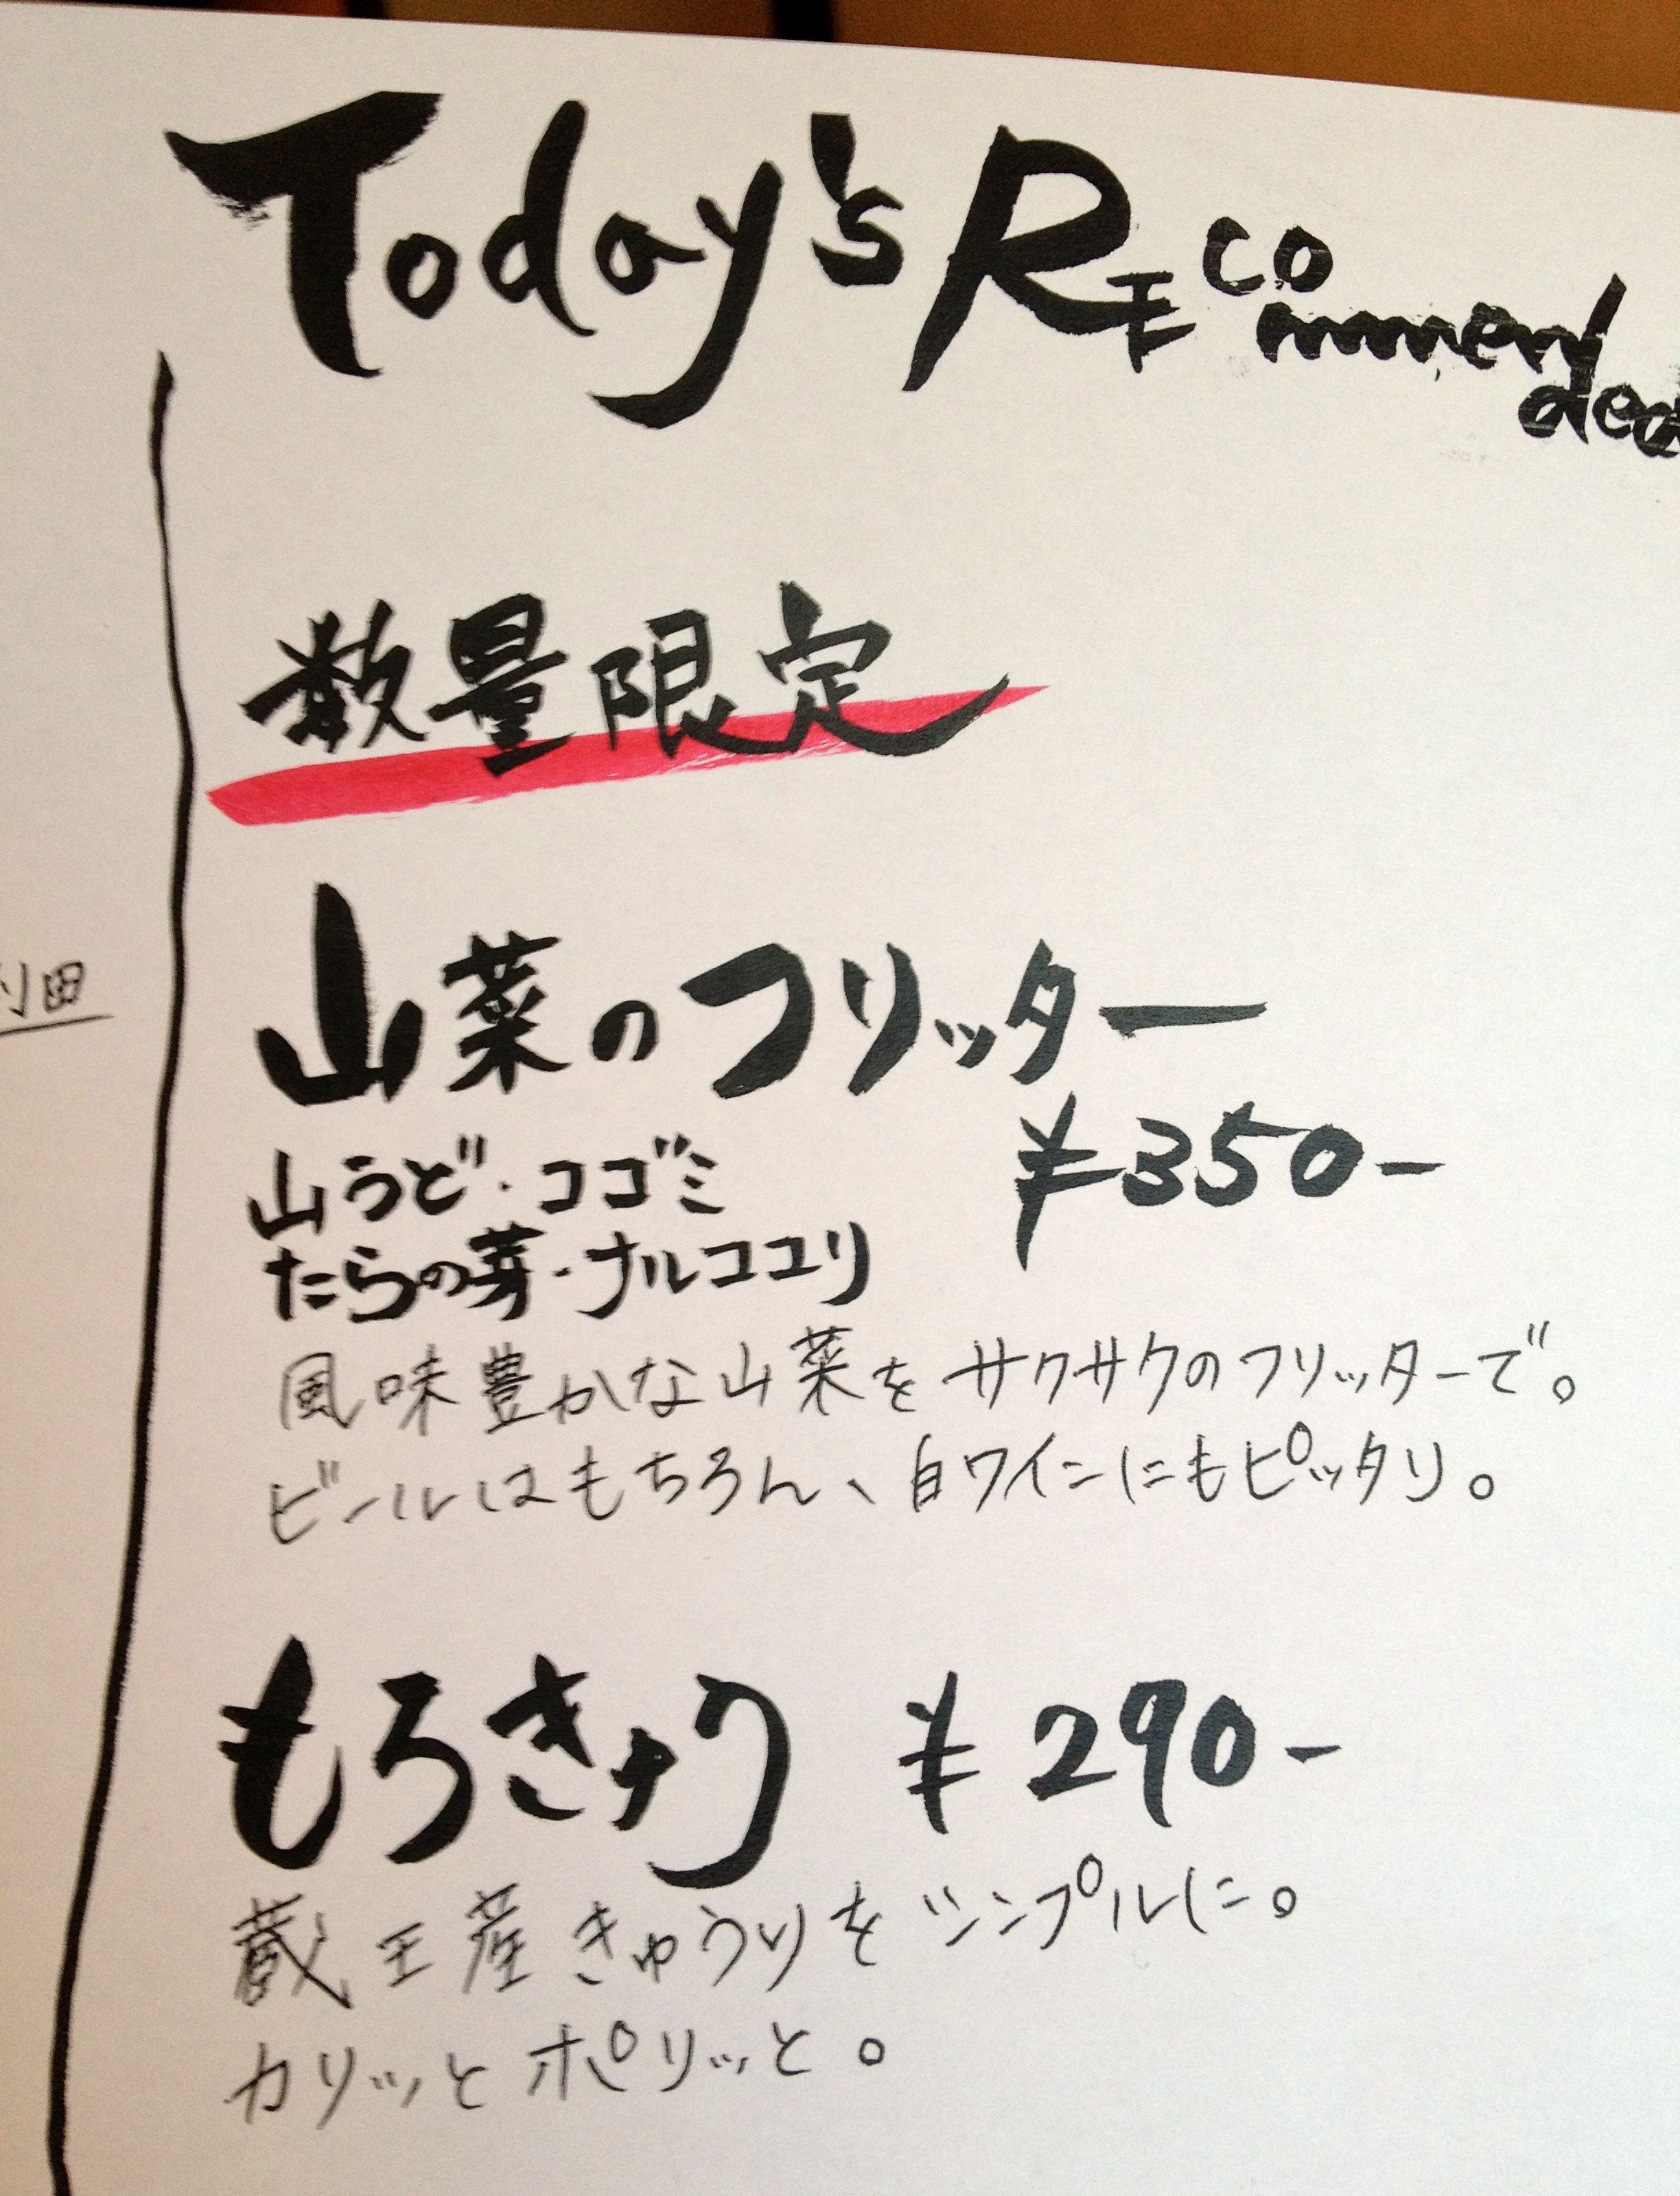 Today's Recommended
数量限定
山菜のフリッター
¥350-
山うど・コゴミ
たらの芽・ナルコユリ
風味豊かな山菜をサクサクのフリッターで。
ビールはもちろん、白ワインにもピッタリ。
もろきゅう ¥290-
蔵王産きゅうりをシンプルに。
カリッとポリッと。